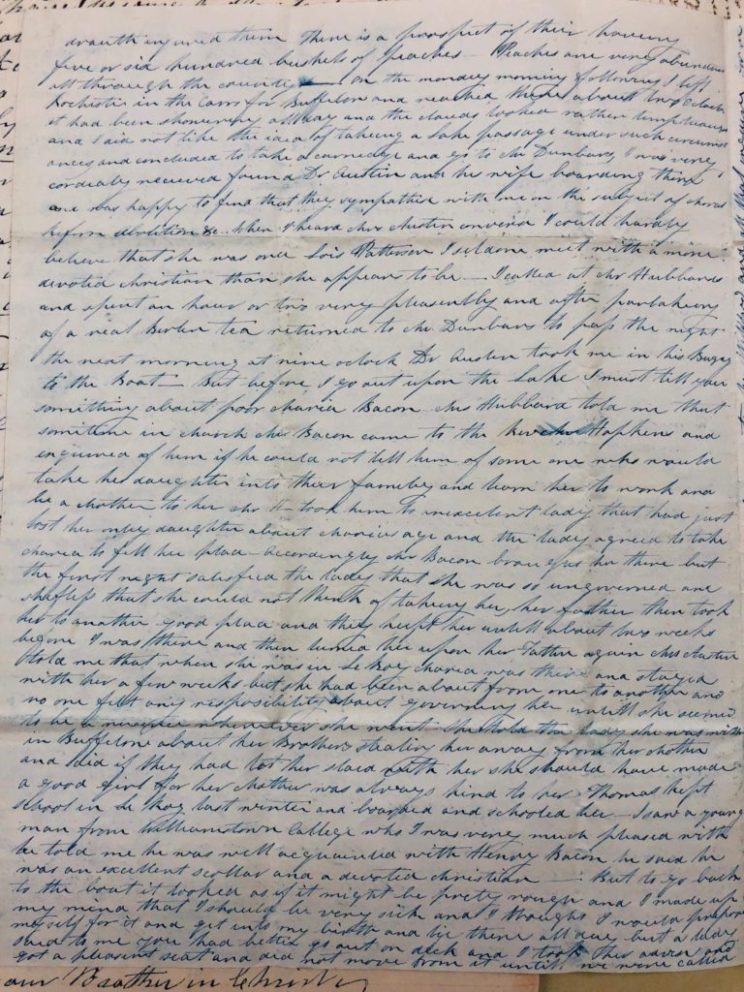 drauth injured them There is a prospect of their having
five or six hundred bushels of peaches – Peaches are very abundant
all through the county – on the monday morning following I left
Rochester in the Carrs for Buffelon and reached there about two oclock
it had been showering all day and the clouds looked rather tempestuous
and I did not like the idea of takeing a Lake passage under such circumst
ances and concluded to take a carriedge and go to Mr Dunbars I was very
cordialy recieved found Dr Austin and his wife boarding there
and was happy to find that they sympathise with me on the subject of moral
reform abolition &c. When I heard Mrs Austin converse I could hardly
believe that she was once Lois Patterson I seldom meet with a more
devoted christian than she appears to be – I called at Mr Hubbards
and spent an hour or two very pleasently and after partakeing
of a real Berlin tea returned to Mr Dunbars to pass the night
the next morning at nine oclock Dr Austin took me in his Buggy
to the Boat – But before I go out upon the Lake I must tell you
something about poor Maria Bacon Mrs Hubbard told me that
sometime in March Mr Bacon came to the Hopkins and
enquired of him if he could not tell him of some one who would
take his daughter into their family and learn her to work and
be a Mother to her Mr H– took him to an excelent lady that had just
lost her only daughter about Marias age and the lady agreed to take
Maria to fill her place – Accordingly Mr Bacon brought her there but
the first night satisfied the lady that she was so ungoverned and
shifless that she could not think of takeing her, her father then took
her to another good place and they kept her untill about two weeks
before I was there and then turned her upon her Father again Mrs Austin
told me that when she was in Le Roy Maria was there and stayed
with her a few weeks but she had been about from one to another and
no one felt any resposibility about governing her untill she seemed
to be a nusance wherever she went. She told the lady she was with
in Buffelon about her Brothers stealing her away from her Mother
and said if they had let her staid with her she should have made
a good girl for her Mother was always kind to her Thomas kept
school in Le Roy last winter and boarded and schooled her – I saw a young
man from Williamstown College who I was very much pleased with
he told me he was well acquainted with Henry Bacon he said he
was an excellent scollar and a devoted christian – : But to go back
to the boat it looked as if it might be pretty rough and I made up
my mind that I should be very sick and I thought I would prepare
myself for it and get into my birth and lie there all day but a lady
said to me you had better go out on deck and I took her advice and
got a pleasent seat and did not move from it untill we were called
our Brother in Christ